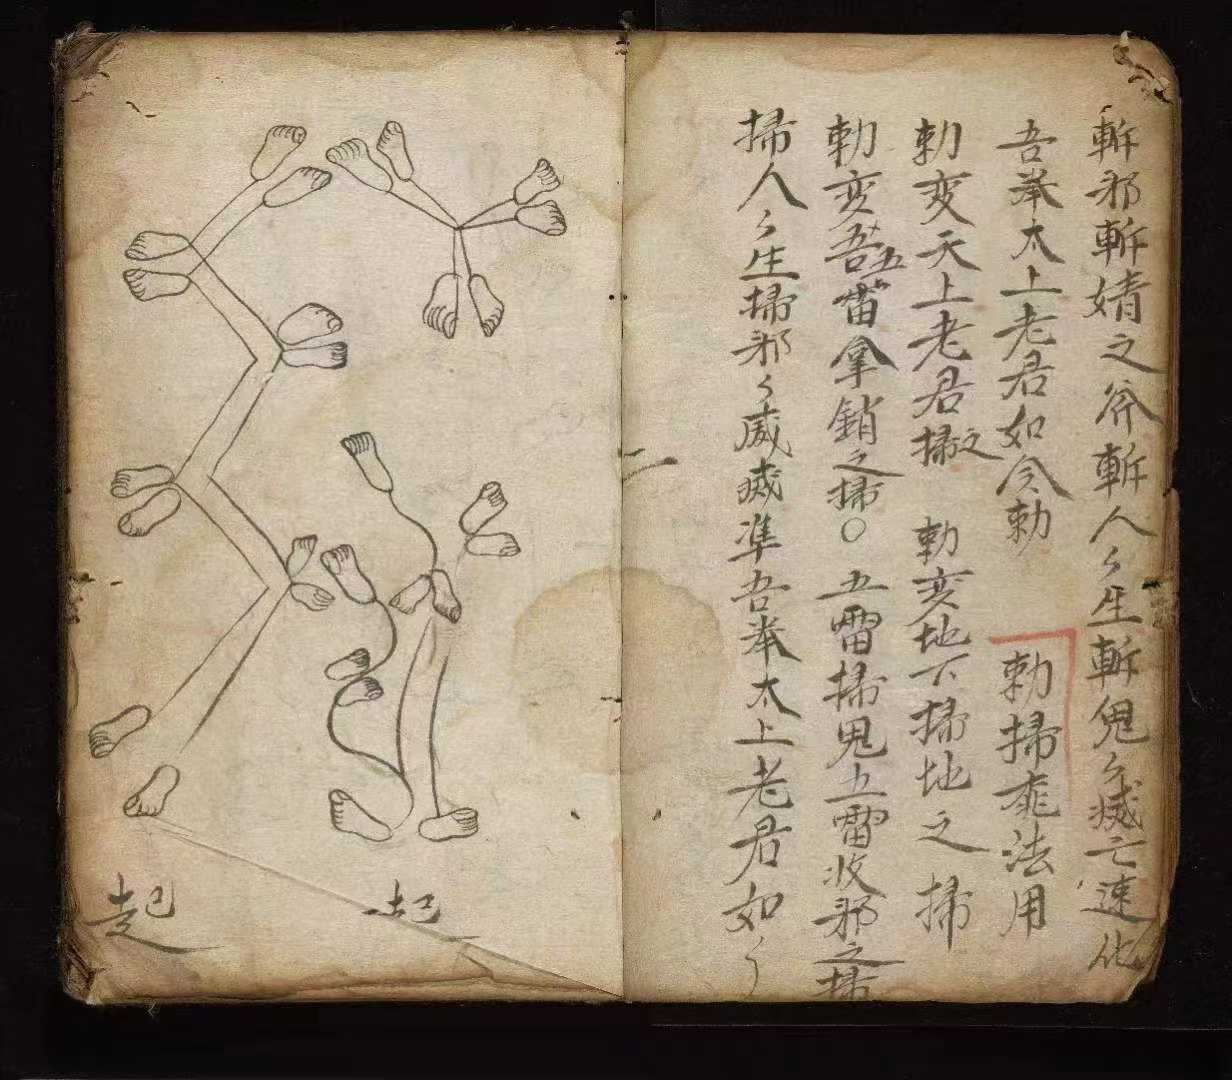 斬邪斬婧之斧斬人々生斬鬼々滅亡速化
吾奉太上老君如令勅
勅掃庭法用
勅变天上老君掃之 勅变地下掃地之掃
勅变吾五雷拿銷之掃〇五雷掃鬼五雷收邪之掃
掃人々生掃邪々威滅準吾奉太上老君如々
二
起
起